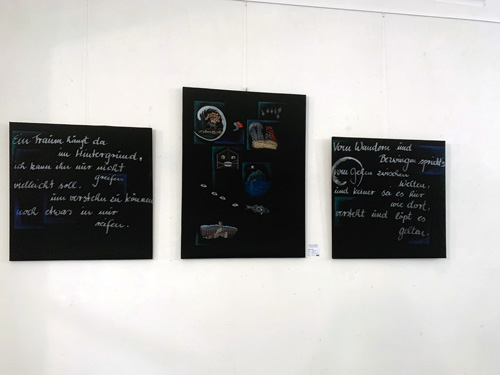 Ein Traum hängt da
im Hintergrund,
ich kann ihn nur nicht
greifen
vielleicht soll.
um verstehn zu können
noch etwas in mir
reifen.
Vom Wandern und
Bezwingen spricht's
vom Gehen zwischen
Welten.
und keiner sa es hier
wie dort.
versteht und läßt es
gelten.